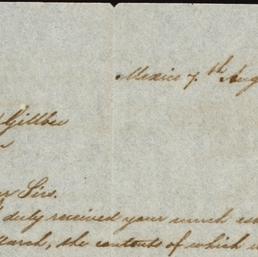 Mexico 7th Aug
Gillbee
Sirs.
duly received your much
March, the contents of which